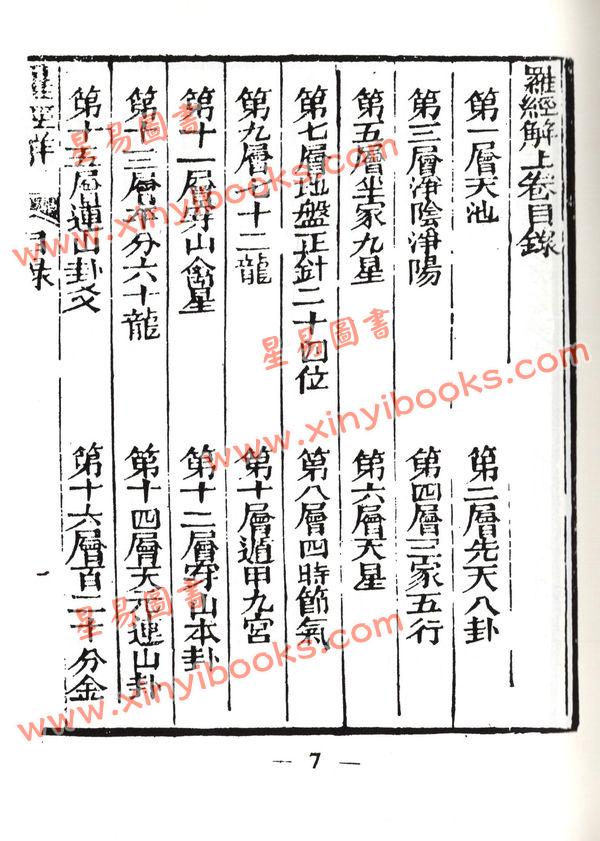 羅經解上卷目錄
第一層天池
第二層先天八卦
第三層淨陰淨陽
第四層三家五行
第五層坐家九星
第六層天星
第七層地盤正針二十四位
第八層四時節氣
第九層七十二龍
第十層遁甲九宮
第十一層穿山禽星
第十二層穿山本卦
第十三層平分六十龍
第十四層天元連山卦
第十五層連山卦爻
第十六層百二十分金
目录
— 7 —
星易圖書
www.xinyibooks.com
星易圖書
www.xinyibooks.com
星易圖書
www.xinyibooks.com